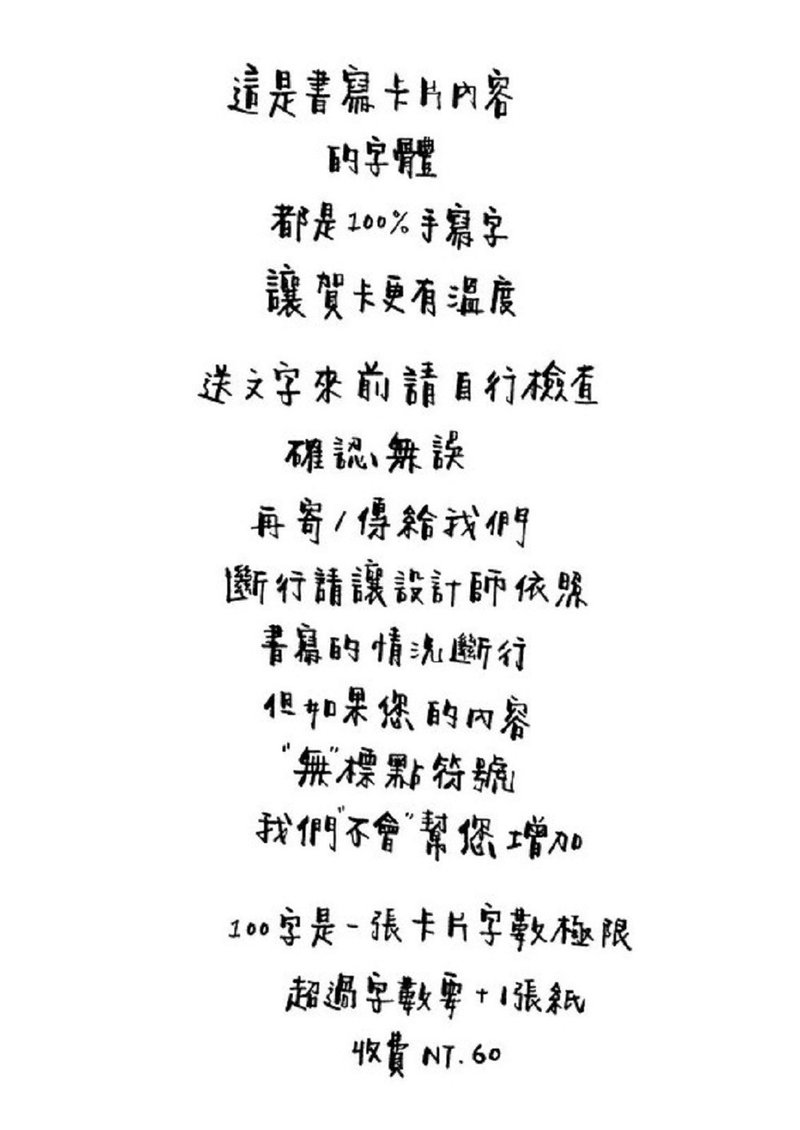 這是書寫卡片內容
的字體
都是100%手寫字
讓賀卡更有溫度
送文字來前請自行檢查
確認無誤
再寄/傳給我們
斷行請讓設計師依照
書寫的情況斷行
但如果您的內容
"無"標點符號
我們"不會"幫您增加
100字是一張卡片字數極限
超過字數要+1張紙
收費NT.60